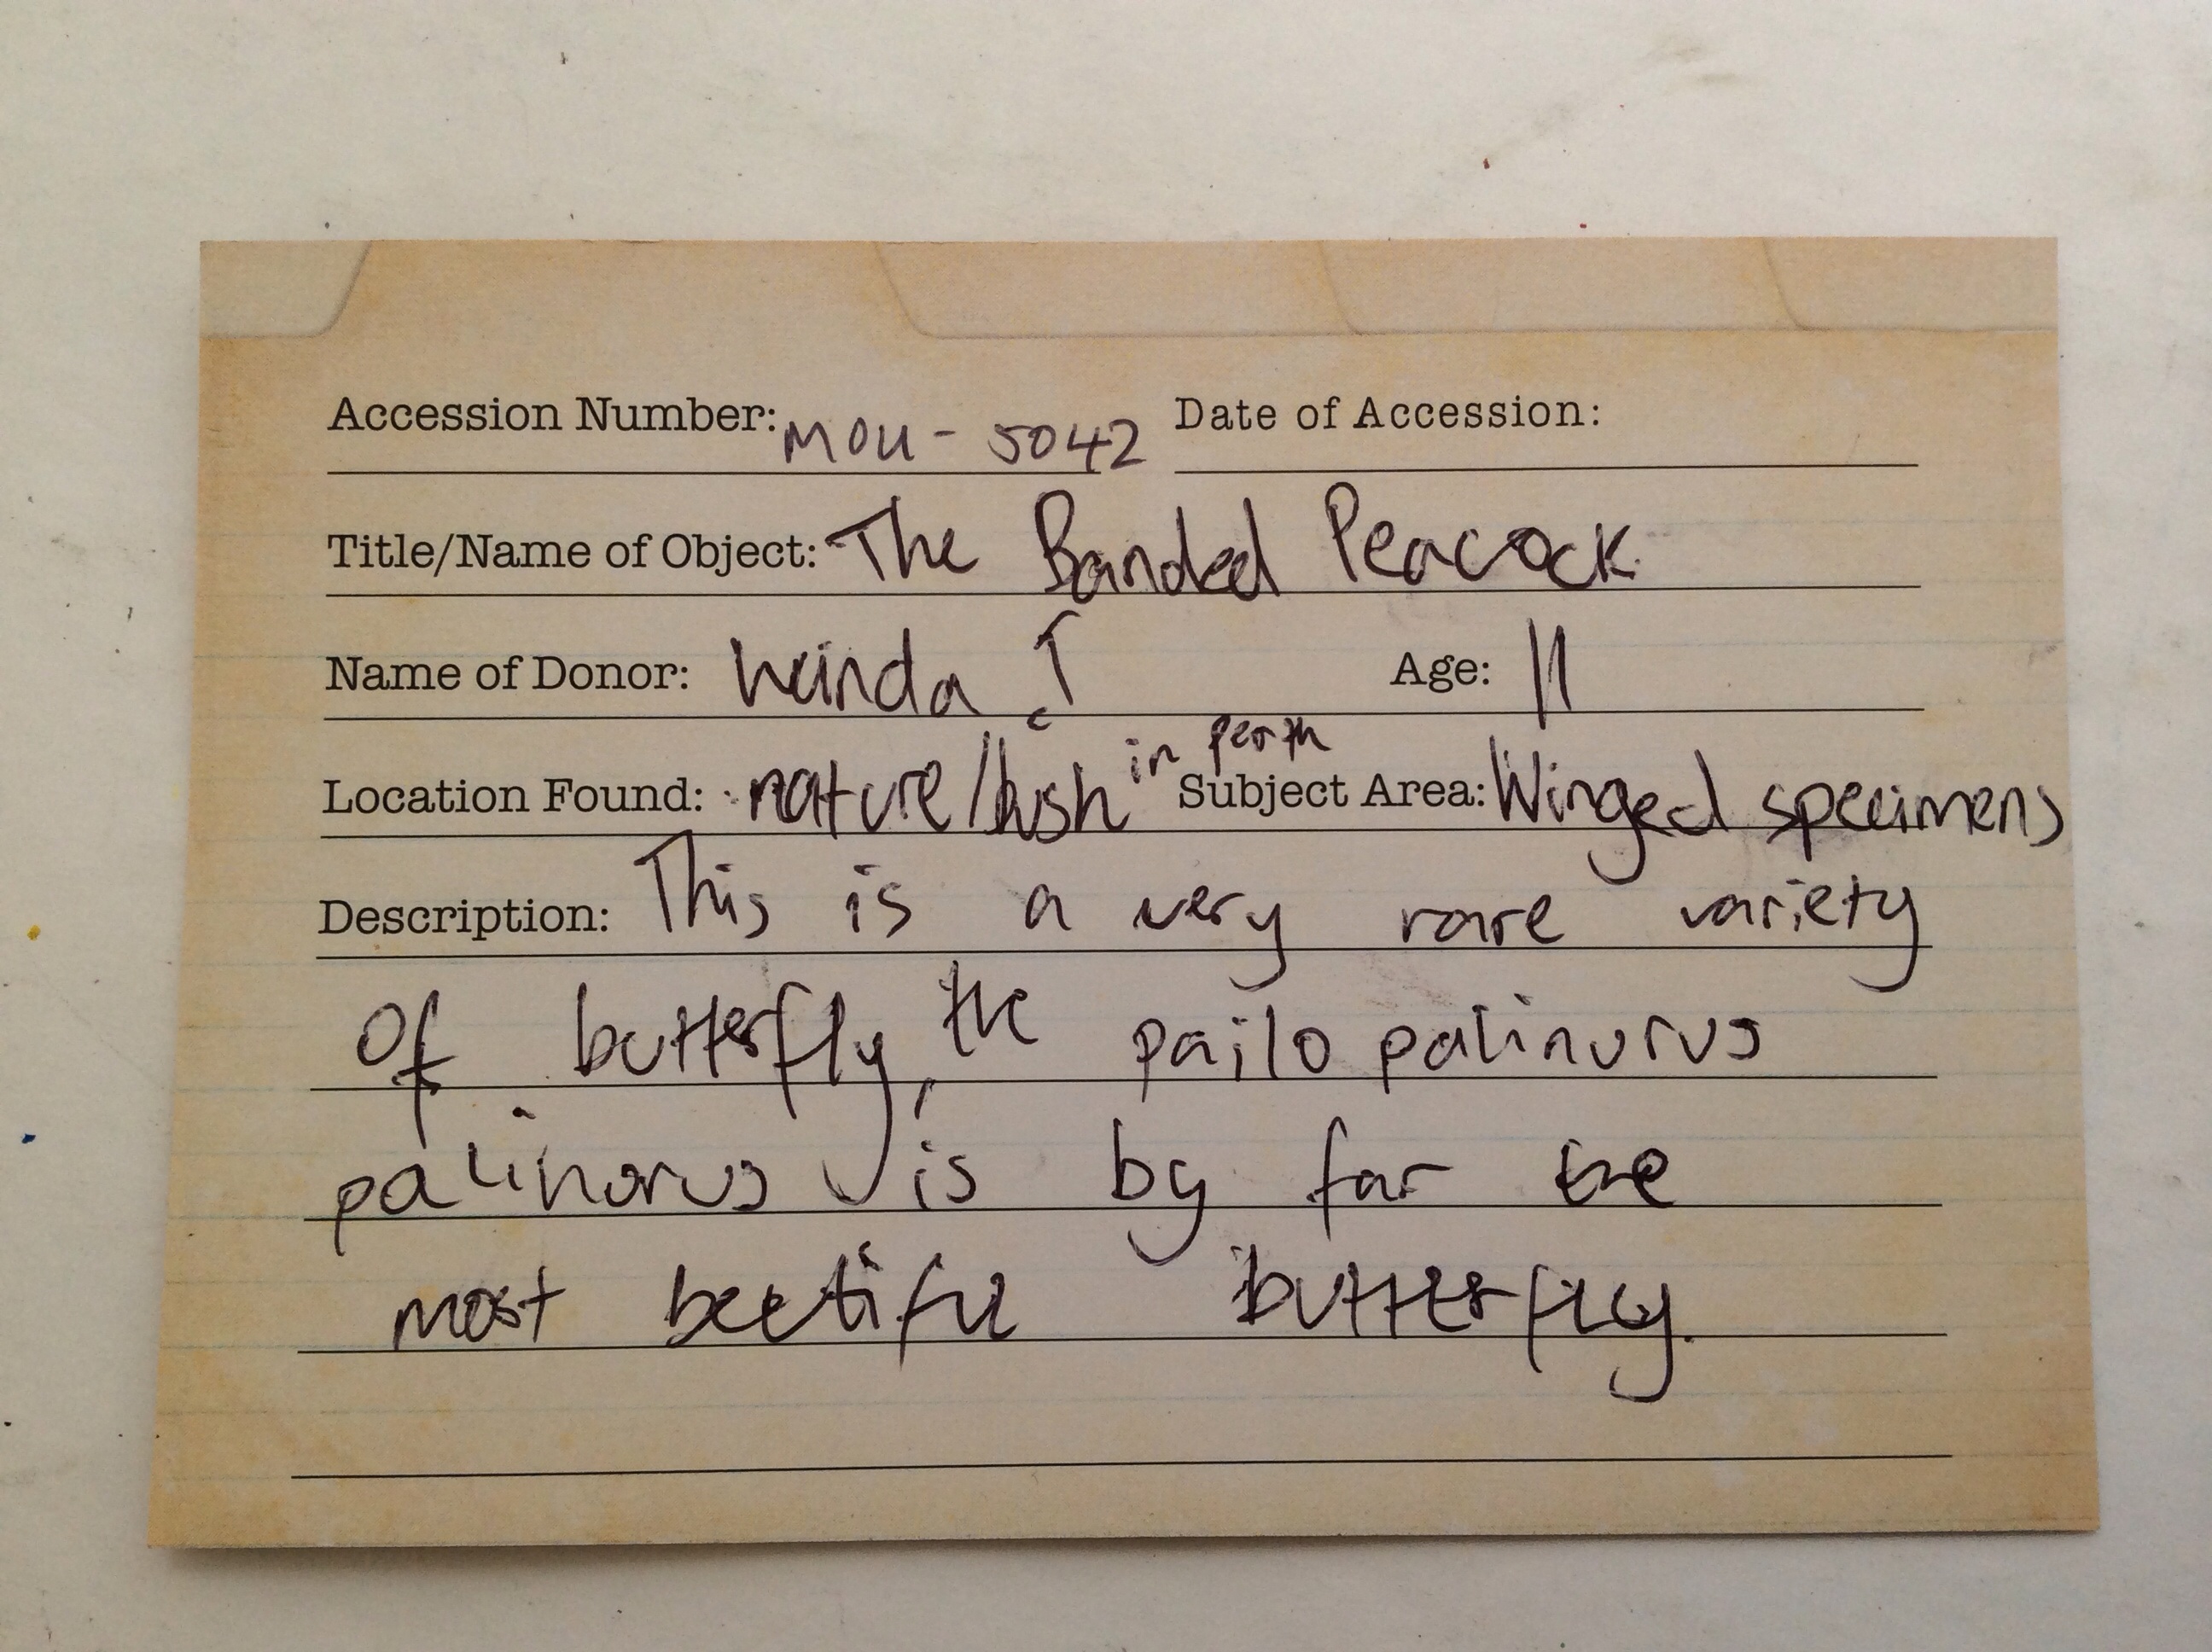 Accession Number: MOU - 5042 Date of Accession:
Title/Name of Object: The Banded Peacock
Name of Donor: J Age: 11
in perth
Location Found: nature/bush Subject Area: Winged specimens
Description: This is a very rare variety
Of butterfly, the pailo palinurus
palinorus is by far the
most beetiful butterfly.